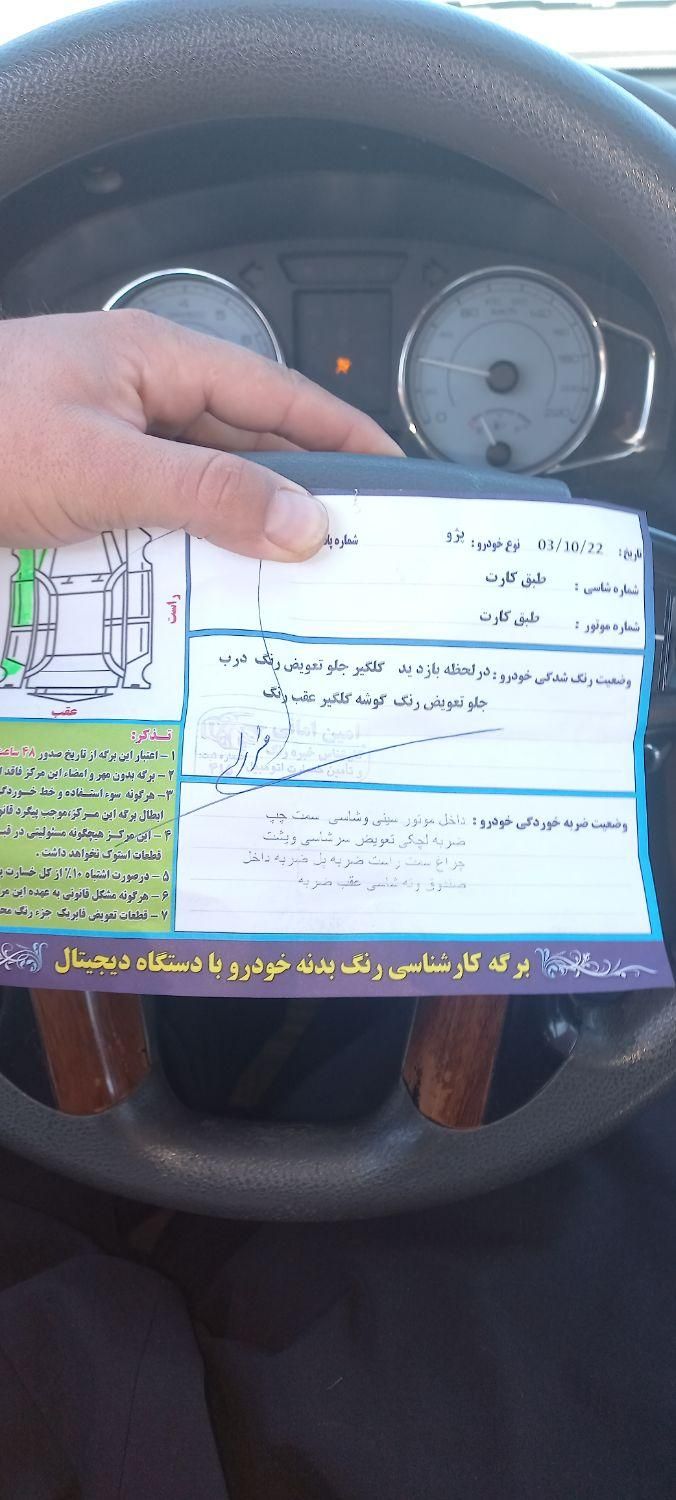 تاریخ: 03/10/22 نوع خودرو: پژو شماره پلا
شماره شاسی : طبق کارت
شماره موتور : طبق کارت
وضعیت رنگ شدگی خودرو: در لحظه بازدید گلگیر جلو تعویض رنگ درب
جلو تعویض رنگ گوشه گلگیر عقب رنگ
وضعیت ضربه خوردگی خودرو : داخل موتور سینی وشاسی سمت چپ
ضربه لچکی تعویض سرشاسی وپشت
چراغ سمت راست ضربه پل ضربه داخل
صندوق وته شاسی عقب ضربه
راست
عقب
تـذکر:
۱ - اعتبار این برگه از تاریخ صدور ۴۸ ساعت
۲ - برگه بدون مهر و امضاء این مرکز فاقد
۳- هرگونه سوء استفـاده و خط خـوردگ
ابطال برگه این مـرکز، موجب پیگرد قانو
۴ - این مرکـز هیچگونه مسئولیتی در قبـ
قطعات استوک نخواهد داشت .
۵ - درصورت اشتباه ۱۰٪ از کل خسارت
۶ - هرگونه مشکل قانونی به عهده این مر
۷ - قطعات تعویض فابریک جزء رنگ مح
برگه کارشناسی رنگ بدنه خودرو با دستگاه دیجیتال